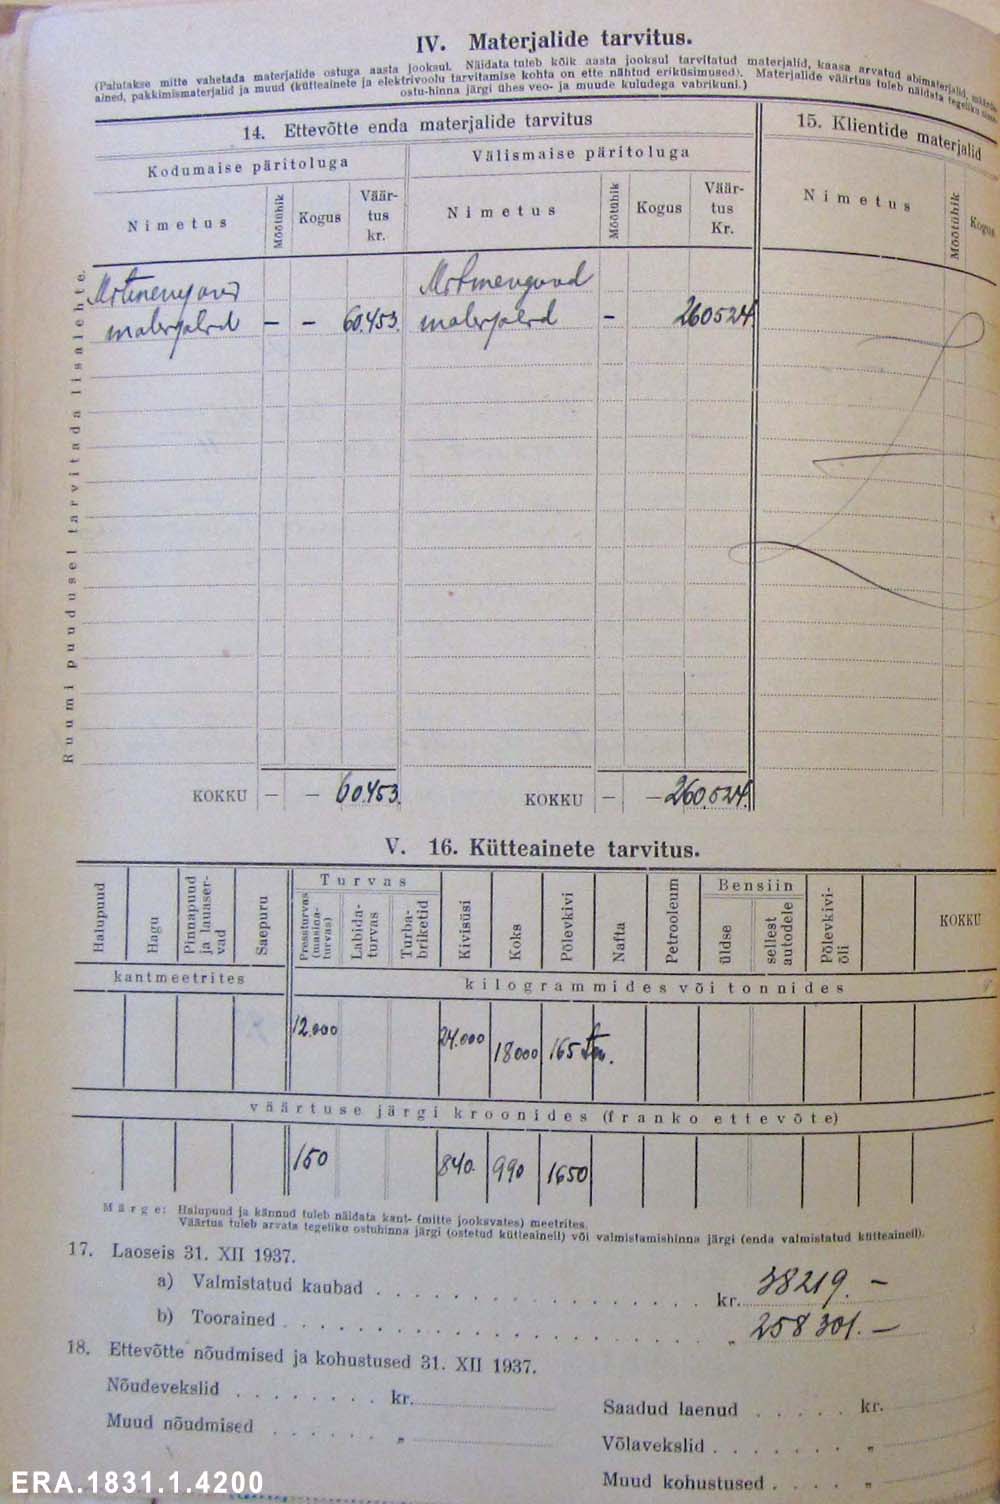 IV. Materjalide tarvitus.
(Palutakse mitte vahetada materjalide ostuga aasta jooksul. Näidata tuleb kõik aasta jooksul tarvitatud materjalid, kaasa arvatud abimaterjalid,
ained, pakkimismaterjalid ja muud (kütteainete ja elektrivoolu tarvitamise kohta on ette nähtud eriküsimused). Materjalide väärtus tuleb näidata tegeliku
ostu-hinna järgi ühes veo- ja muude kuludega vabrikuni.)
14. Ettevõtte enda materjalide tarvitus
15. Klientide materjalid
Kodumaise päritoluga
Välismaise päritoluga
Nimetus
Mõõtühik
Kogus
Väär-
tus
kr.
Nimetus
Mõõtühik
Kogus
Väär-
tus
Kr.
Nimetus
Mõõtühik
Kogus
Ruumi puudusel tarvitada lisalehte.
Mitmesugused
materjalid - - 60.453.
Mitmesugused
materjalid - 260524
KOKKU - - 60.453.
KOKKU - - 260.524.
V. 16. Kütteainete tarvitus.
Halupuud
Hagu
Pinnapuud
ja lauaser-
vad
Saepuru
Turvas
Pressturvas
(masina-
turvas)
Labida-
turvas
Turba-
briketid
Kivisüsi
Koks
Põlevkivi
Nafta
Petrooleum
Bensiin
üldse
sellest
autodele
Põlevkivi-
õli
KOKKU
kantmeetrites
kilogrammides või tonnides
12.000 24.000 18000 165 tn.
väärtuse järgi kroonides (franko ettevõte)
150 840. 990 1650
Märge: Halupuud ja kännud tuleb näidata kant- (mitte jooksvates) meetrites.
Väärtus tuleb arvata tegeliku ostuhinna järgi (ostetud kütteaineil) või valmistamishinna järgi (enda valmistatud kütteaineil).
17. Laoseis 31. XII 1937.
a) Valmistatud kaubad . . . . kr. 38219. -
b) Toorained . . . . „ 258301. -
18. Ettevõtte nõudmised ja kohustused 31. XII 1937.
Nõudevekslid . . . . kr.
Muud nõudmised . . . . „
Saadud laenud . . . . kr.
Võlavekslid . . . . „
Muud kohustused . . . . „
ERA.1831.1.4200